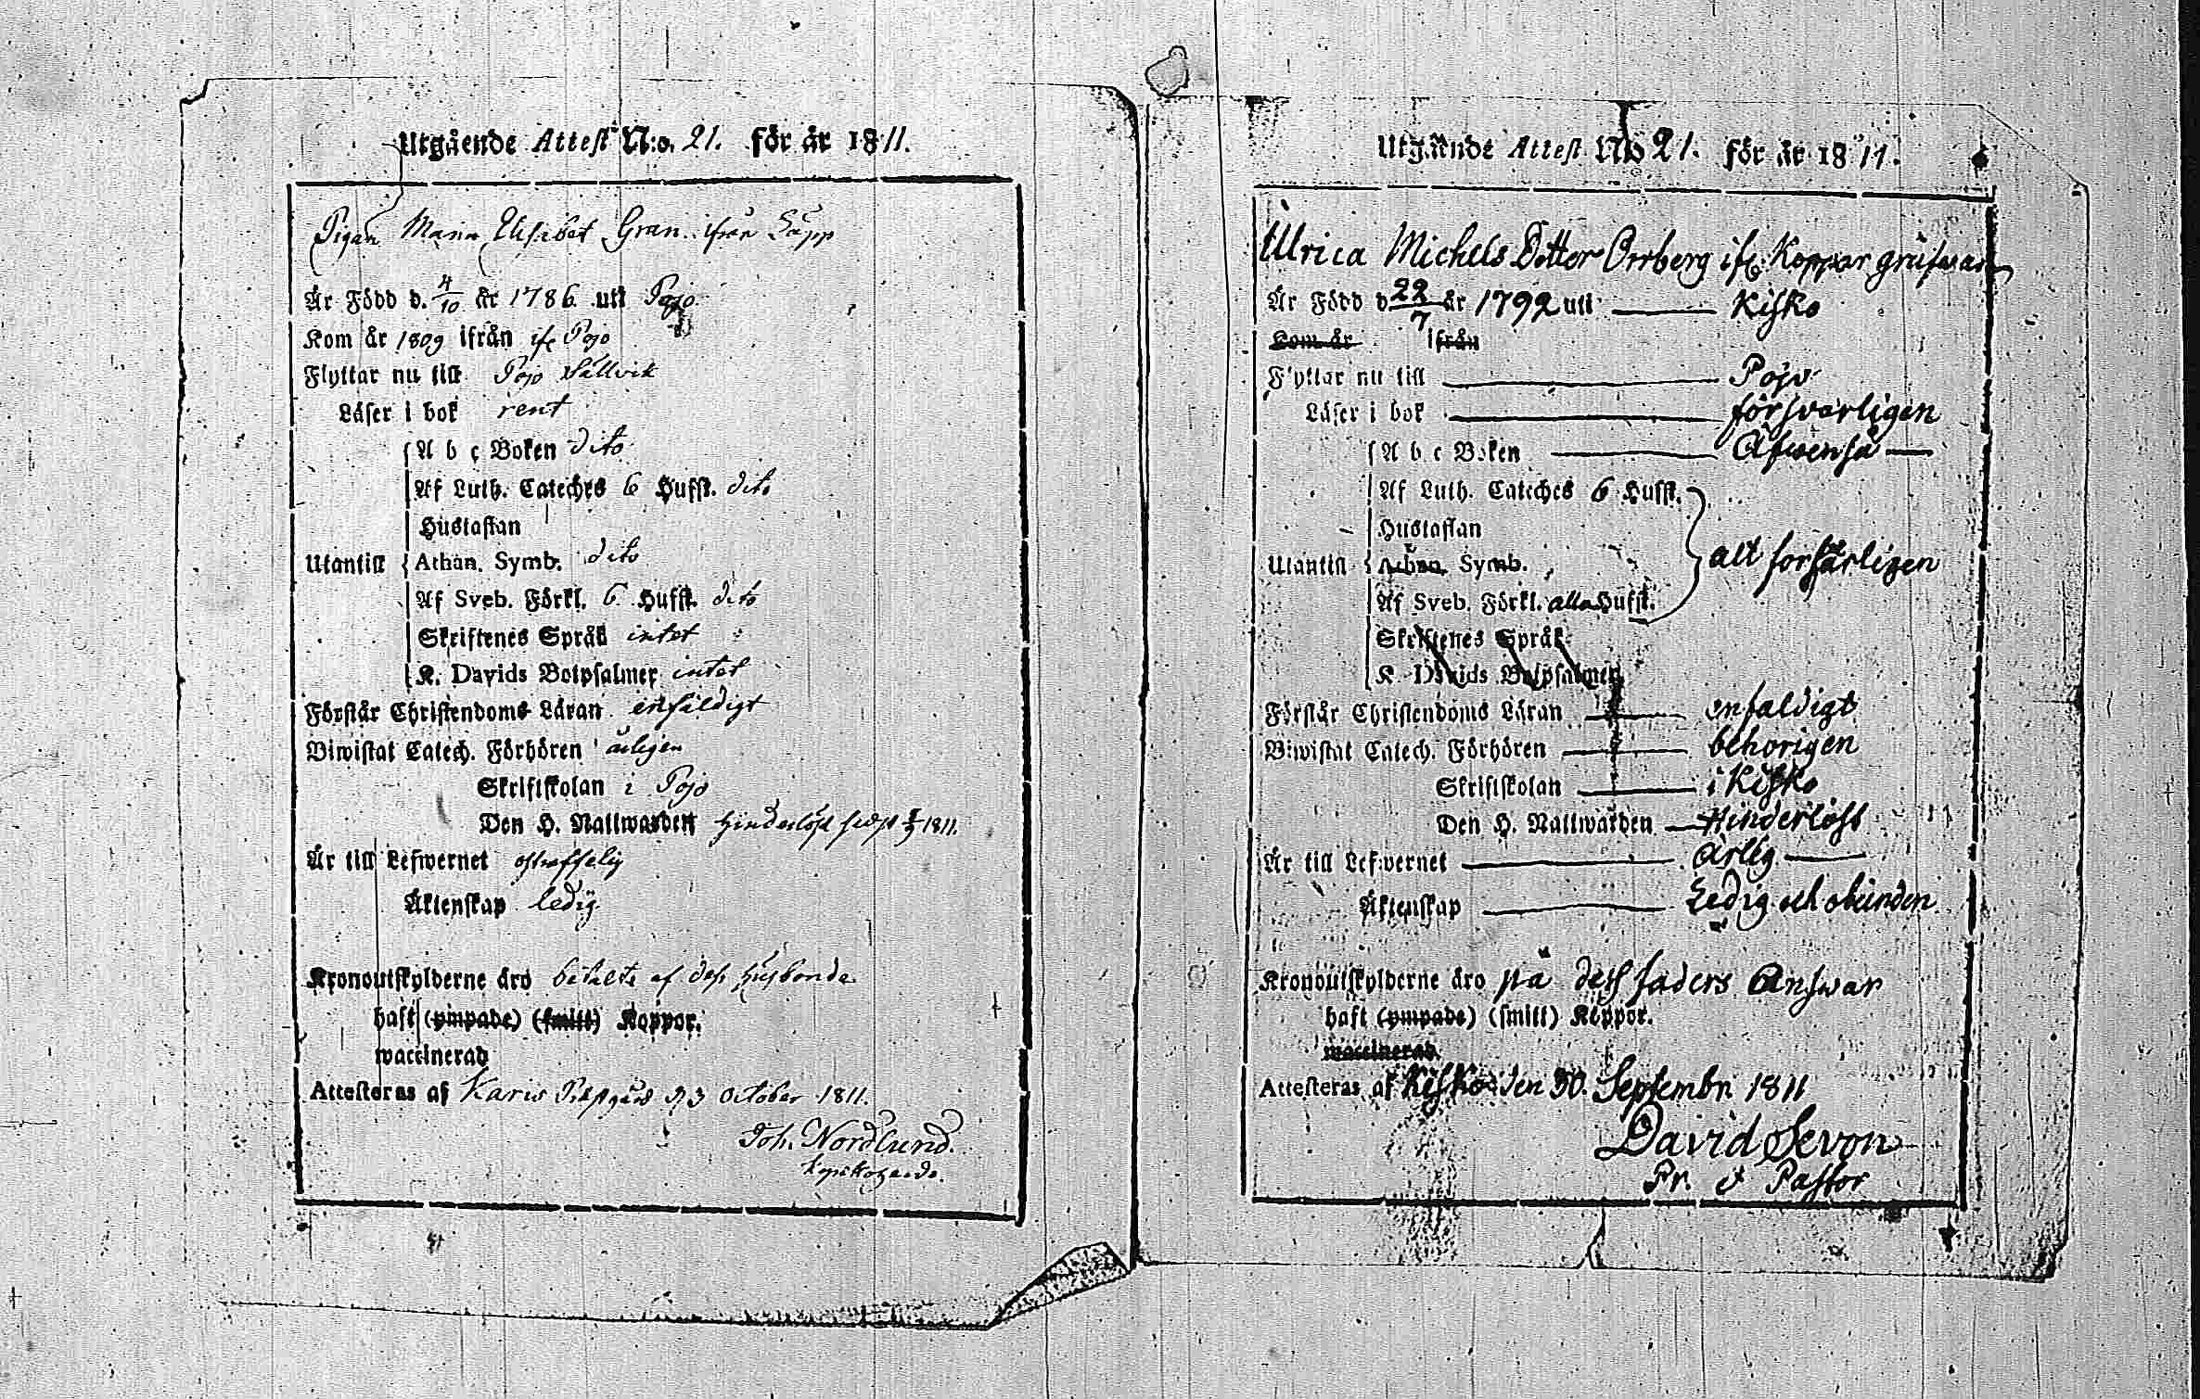 Utgående Attest N:o. 21. för år 1811.
Pigan Maria Elisabet Gran ifrån
Är Född d. 4/10 år 1786. uti Pojo
Kom år 1809 ifrån Pojo
Flyttar nu till Pojo Sällvik
Läser i bok rent
A b c Boken dito
Af Luth. Cateches 6 Hufst. dito
Hustaflan
Utantill Athan. Symb. dito
Af Sveb. Förkl. 6 Hufst. dito
Skriftenes Språk intet
K. Davids Botpsalmer intet
Förstår Christendoms Läran enfaldigt
Biwistat Catech. Förhören årligen
Skriftskolan i Pojo
Den H. Nattwarden hinderlöst sidst 1811.
Är till Lefwernet ostraffelig
Äktenskap ledig
Kronoutskylderne äro betalte af dess husbonde
haft (ympade) (smitt) Koppor.
waccinerad
Attesteras af Karis Prästgård d. 3 October 1811.
Joh. Nordlund.
Utgående Attest No 21. för år 1811.
Ulrica Michels Dotter Orrberg ifr. Koppar grufwan
Är Född d 22/7 år 1792 uti Kisko
Kom år ifrån
Flyttar nu till Pojo
Läser i bok försvarligen
A b c Boken Äfwenså
Af Luth. Cateches 6 Hufst.
Hustaflan
Utantill Athan. Symb. alt forsvarligen
Af Sveb. Förkl. alla Hufst.
Skriftenes Språk
K. Davids Botpsalmer
Förstår Christendoms Läran enfaldigt
Biwistat Catech. Förhören behorigen
Skriftskolan i Kisko
Den H. Nattwarden Hinderlöst
Är till Lefwernet ärlig
Äktenskap Ledig och obunden
Kronoutskylderne äro på dess faders Answar
haft (ympade) (smitt) Koppor.
waccinerad
Attesteras af Kisko den 30. Septembr. 1811
David Sevon
Pr. V. Pastor